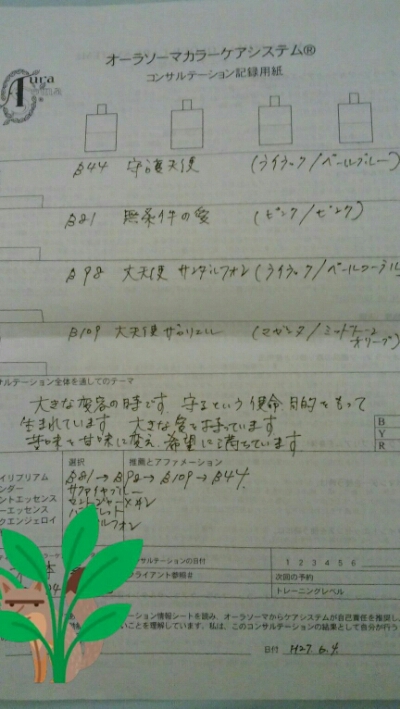 オーラソーマカラーケアシステム®
コンサルテーション記録用紙
B44 守護天使 (ライラック/ペールブルー)
B81 無条件の愛 (ピンク/ピンク)
B98 大天使 サンダルフォン (ライラック/ペールコーラル)
B109 大天使 ザカリエル (マゼンタ/ミッドトーンオリーブ)
サルテーション全体を通してのテーマ
大きな変容の時です。守るという使命目的をもって
生まれています 大きな愛を持っています
苦味を甘味に変え、希望に満ちています
B
Y
R
選択 推薦とアファメーション
イリブリアム B81→B98→B109→B44
ンダー
ントエッセンス
ーエッセンス
クエンジェロイ
サルテーションの日付 1 2 3 4 5 6
クライアント参照# 次回の予約
トレーニングレベル
ーション情報シートを読み、オーラソーマカラーケアシステムが自己責任を推奨し、
いことを理解しています。私は、このコンサルテーションの結果として自分が行う
日付 H27.6.4.